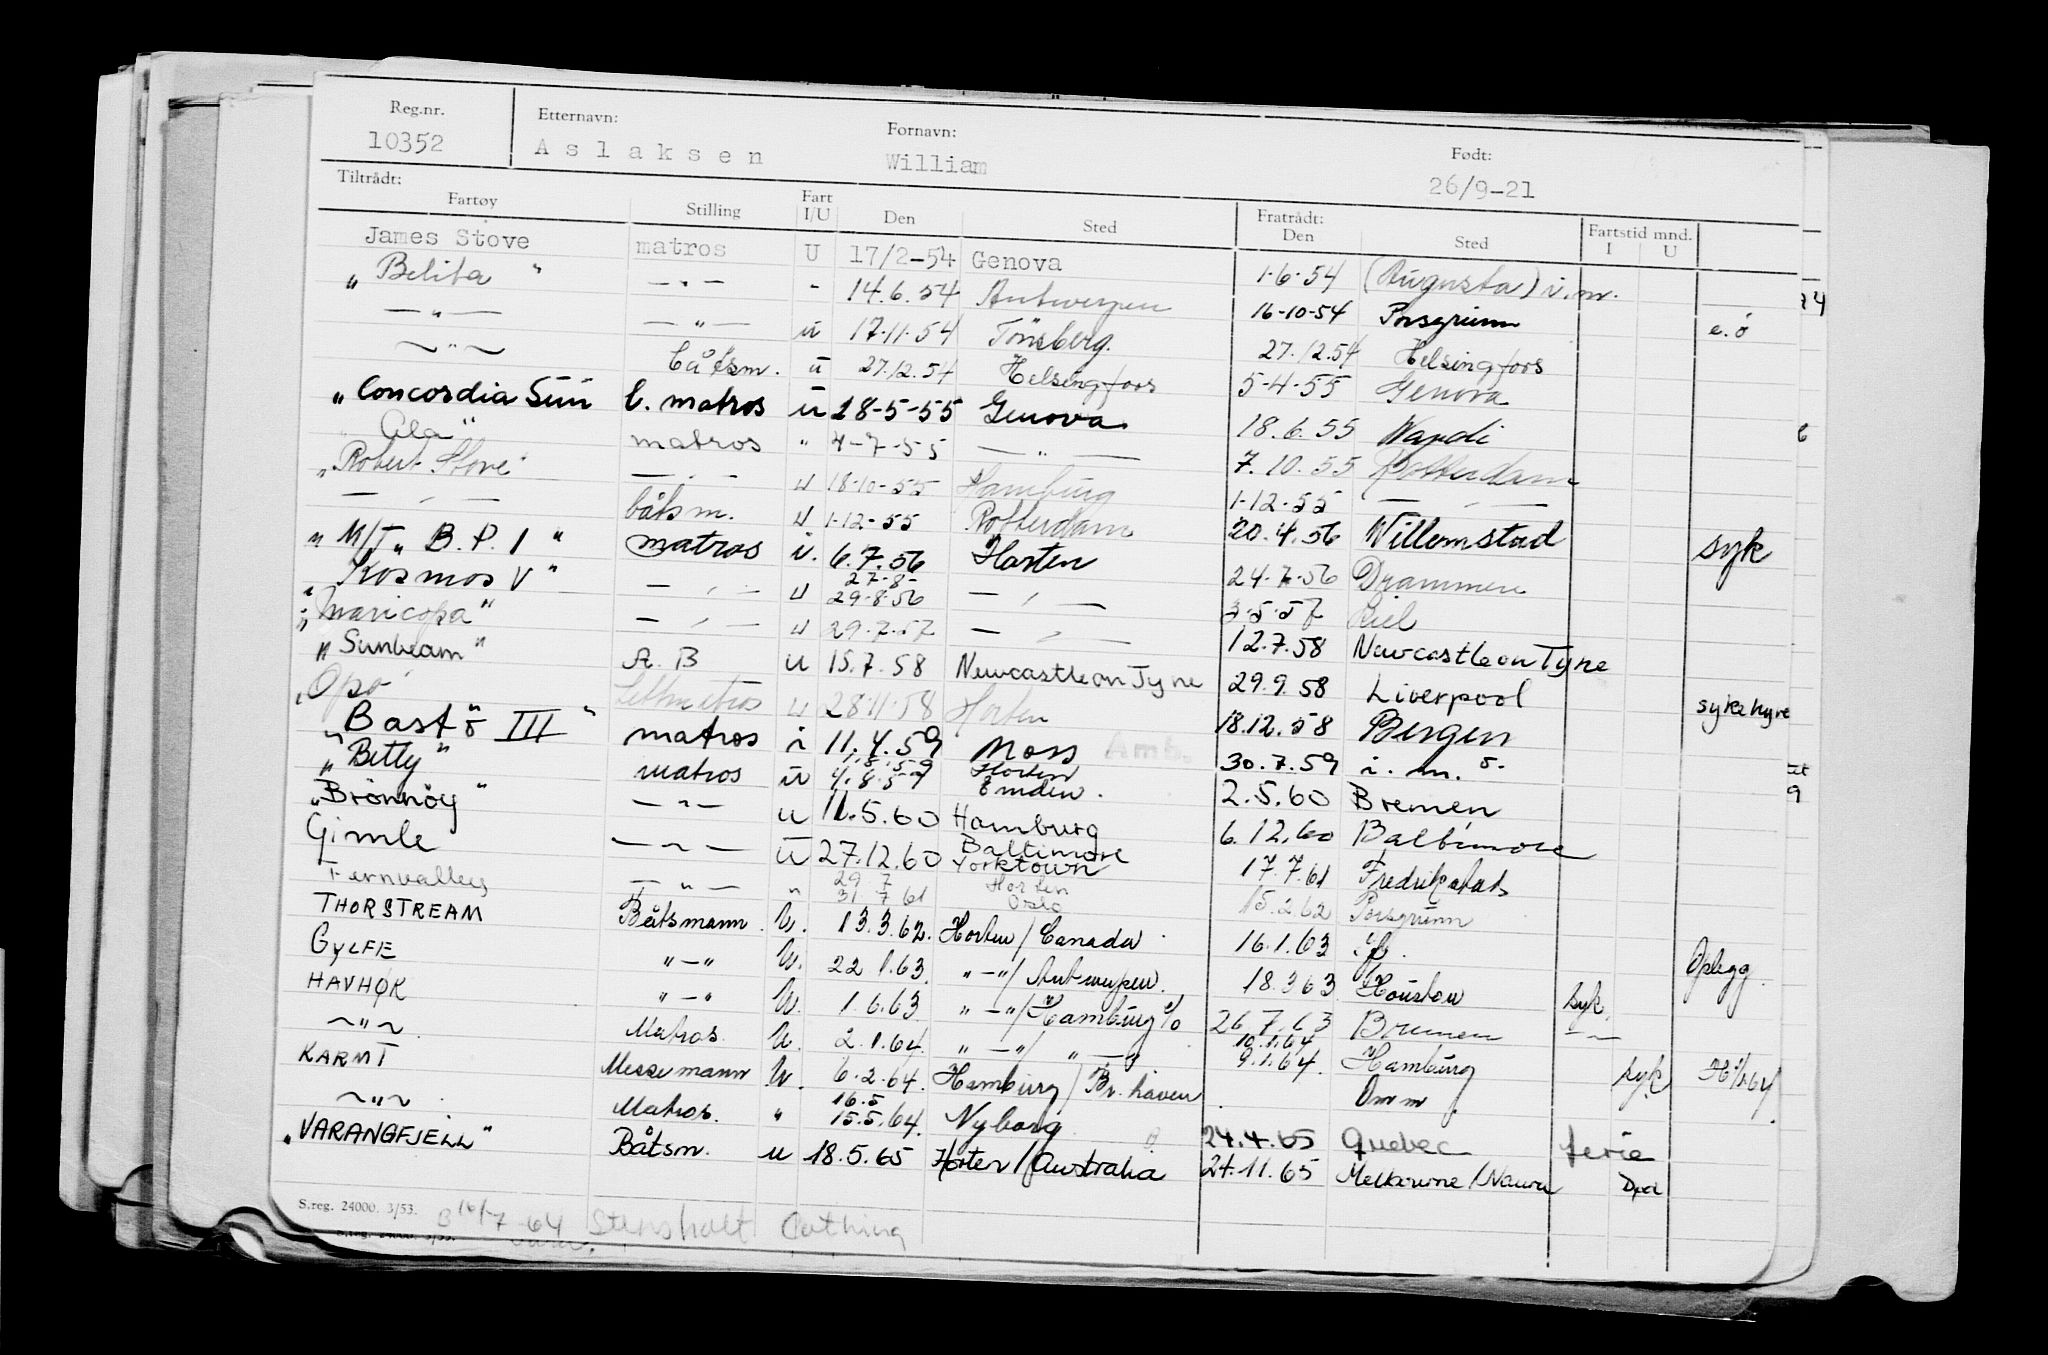 Reg.nr. Etternavn: Fornavn: Født:
10352 Aslaksen William 26/9-21
Tiltrådt: Fratrådt:
Fartøy Stilling Fart I/U Den Sted Den Sted Fartstid mnd. I U
James Stove matros U 17/2-54 Genova 1-6-54 (Augusta) i.m.
"Belita" — " — - 14.6.54 Antwerpen 16-10-54 Porsgrunn e.ö
— " — — " — u 17-11-54 Tönsberg. 27.12.54 Helsingfors
— " — båtsm. u 27.12.54 Helsingfors 5-4-55 Genova
"Concordia Sun b. matros u 18-5-55 Genova 18.6.55
Ala" matros " 4-7-55 — " — 7.10.55 Rotterdam
"Robert Stove" — " — u 18-10-55 Hamburg 1-12-55 — " —
— " — båtsm. u 1-12-55 Rotterdam 20.4.56 Willemstad syk
" M/T "B.P. 1" matros i. 6.7.56 Horten 24-7-56 Drammen
"Kosmos V" — " — u 27-8- 29-8-56 — " — 3-5-57 Kiel
"Maricopa" — " — u 29-7-57 — " — 12.7.58 Newcastle on Tyne
"Sunbeam" A.B u 15.7.58 Newcastle on Tyne 29.9.58 Liverpool sykehyre
"Opo" Lettmatros u 28.11.58 Horten 18.12.58 Bergen
"Bastö III" matros i 11.4.59 Moss 30.7.59 i.m.ö.
"Betty" matros u 4.8.59 Horten Emden. 2.5.60 Bremen
"Brönnöy" — " — u 11.5.60 Hamburg 6.12.60 Baltimore
Gimle — " — u 27.12.60 Baltimore Yorktown 17.7.61 Fredrikstad
Fernvalley — " — " 29 7 31 7 61 Horten Oslo 15.2.62 Porsgrunn
THORSTREAM Båtsmann. U. 13.3.62. Horten / Canada 16.1.63
GYLFE " — " U. 22 1.63. " — " / Antwerpen. 18.3 63 Houston syk. Oplegg.
HAVHØK " — " U. 1.6.63 " — " / Hamburg 26 7.63 Bremen — " —
— " — Matros. U. 2.1.64. " — " / " — " 10.1.64 9.1.64. Hamburg syk
KARMT Messemann U. 6.2.64. Hamburg / Br. haven Omm.
— " — Matros. " 16.5 15.5.64. Nyborg 24.4.65 Quebec ferie
"VARANGFJELL" Båtsm. u 18.5.65 Horten / Australia 24.11.65 Melbourne / Nauru
S.reg. 24000. 3/53. B 16/7-64 Stensholt